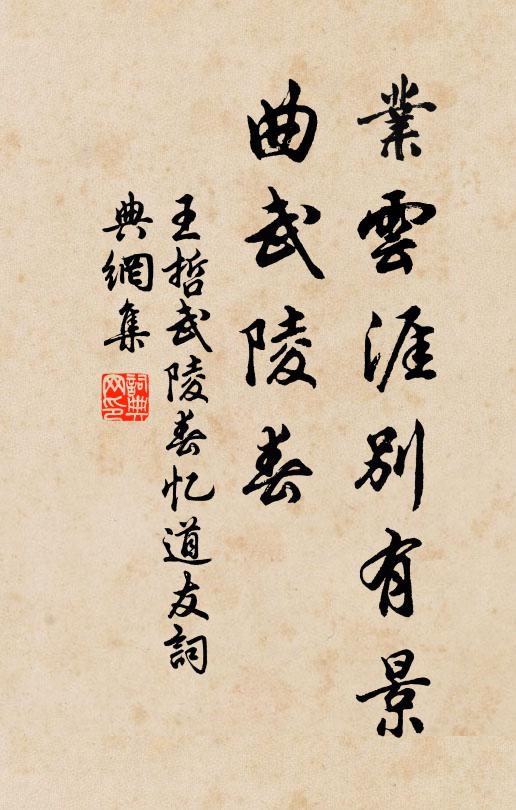 業雲涯別有景
曲武陵春
王哲武陵春忆道友詞
典網集
詞典
网印